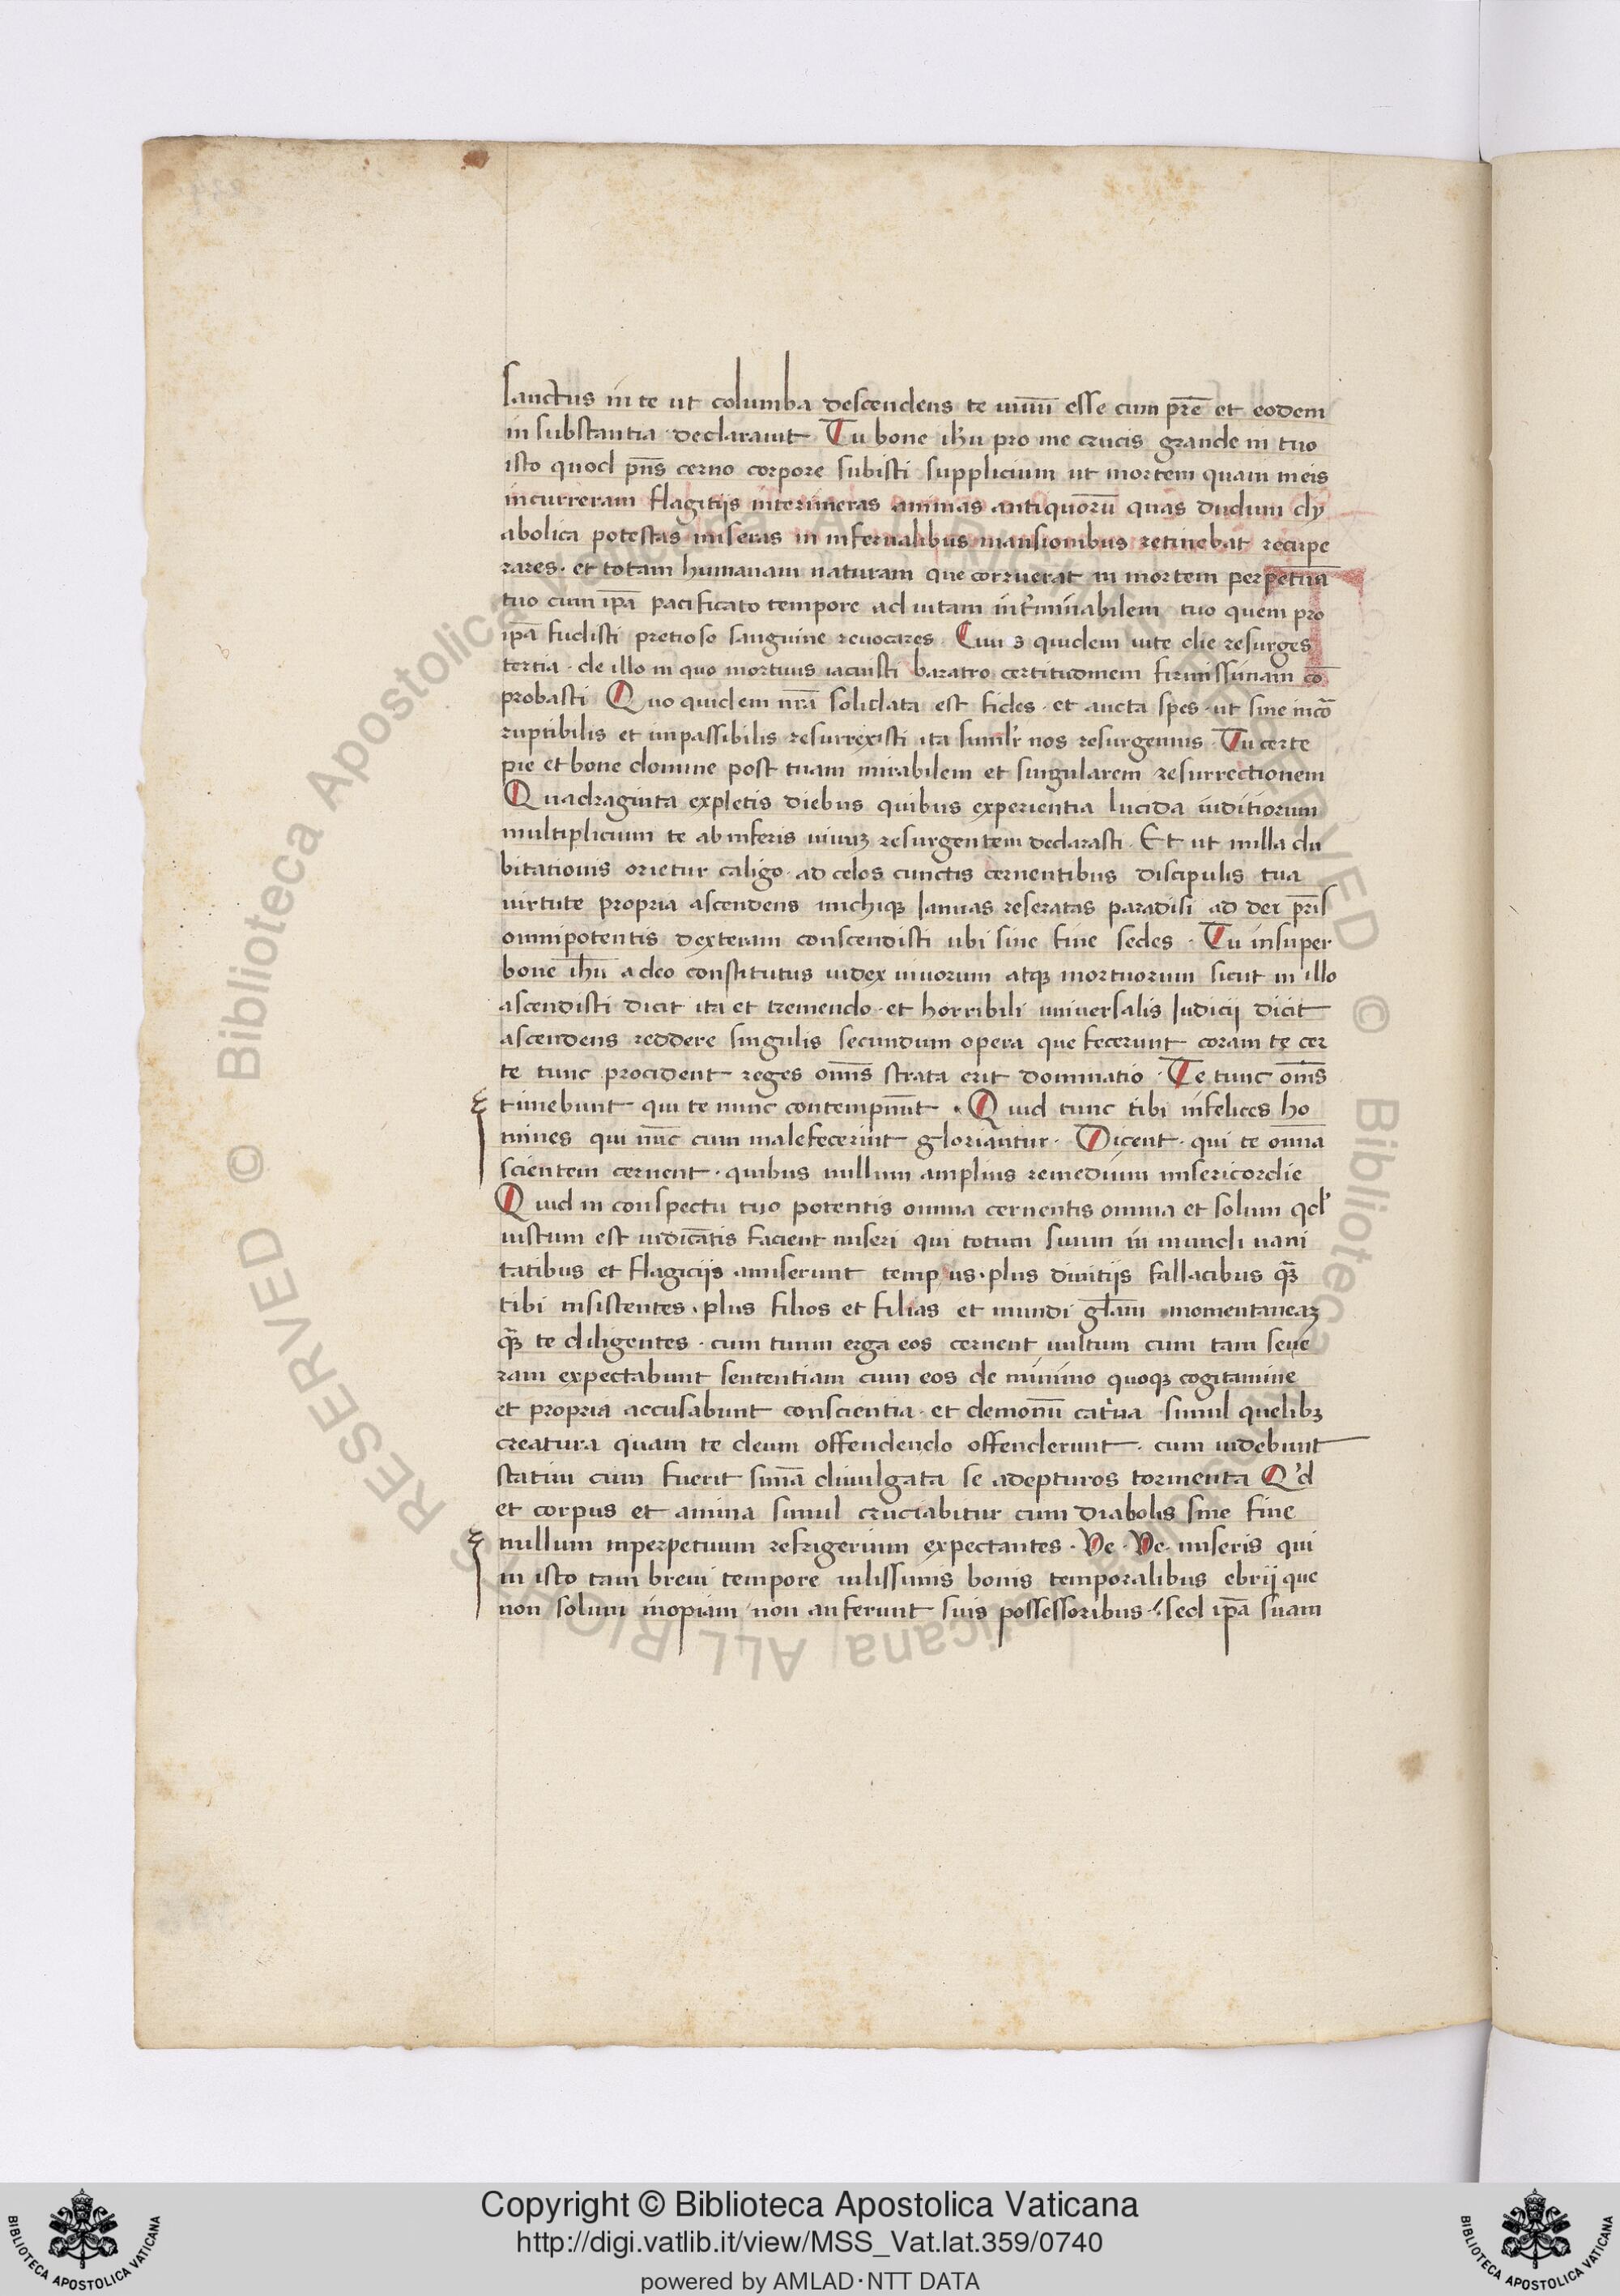 sanctus in te ut columba descendens te unum esse cum pr̄e et eodem
in substantia declarauit. Tu bone ihū pro me crucis grande in tuo
isto quod pn̄s cerno corpore subisti supplicium ut mortem quam meis
incurreram flagitijs interimeras animas antiquorū quas dudum dy
abolica potestas miseras in infernalibus mansionibus retinebat recupe
rares. et totam humanam naturam que corruerat in mortem perpetuā
tuo cum ip̄a pacificato tempore ad uitam int̓minabilem tuo quem pro
ip̄a fudisti pretioso sanguine reuocares. Cuiꝰ quidem uite die resurges
tertia. de illo in quo mortuus iacuisti baratro certitudinem firmissimam cō
probasti Quo quidem nr̄a solidata est fides. et aucta spes. ut sine incō
ruptibilis et impassibilis resurrexisti ita simil̓r nos resurgemus. Tu certe
pie et bone domine post tuam mirabilem et singularem resurrectionem
Quadraginta expletis diebus quibus experientia lucida inditiorum
multiplicium te ab inferis uiuuꝫ resurgentem declarasti. Et ut nulla du
bitationis orietur caligo. ad celos cunctis cernentibus discipulis tua
uirtute propria ascendens michiqꝫ Ianuas reseratas paradisi ad dei pr̄is
omnipotentis dexteram conscendisti ubi sine fine sedes. Tu insuper
bone ihū a deo constitutus iudex uiuorum atqꝫ mortuorum sicut in illo
ascendisti dicit ita et tremendo. et horribili uniuersalis Iudicij dicit
ascendens reddere singulis secundum opera que fecerunt coram te cer
te tunc procident reges omn̄s strata erit dominatio. Te tunc omn̄s
timebunt qui te nunc contempnūt. Quid tunc tibi infelices ho
mines qui nūc cum malefecerint gloriantur. Dicent. qui te omnā
scientem cernent. quibus nullum amplius remedium misericordie
Quid in conspectu tuo potentis omnia cernentis omnia et solum qd̓
iustum est iudicātis facient miseri qui totum suum in mundi uani
tatibus et flagicijs amiserunt tempus. plus diuitijs fallacibus qꝫ̄
tibi insistentes. plus filios et filias et mundi gl̄am momentaneaꝫ
qꝫ̄ te diligentes. cum tuum erga eos cernent uultum cum tam seue
ram expectabunt sententiam cum eos de minimo quoqꝫ cogitamine
et propria accusabunt conscientia. et demonū cat̓ua simul quelibꝫ
creatura quam te deum offendendo offenderunt. cum uidebunt
statim cum fuerit sn̄ia diuulgata se adepturos tormenta Q̓d
et corpus et anima simul cruciabitur cum diabolis sine fine
nullum inperpetuum refrigerium expectantes. Ve. Ve. miseris qui
in isto tam breui tempore uilissimis bonis temporalibus ebrij que
non solum inopiam non auferunt suis possessoribus. sed ip̄a suam
Copyright © Biblioteca Apostolica Vaticana
http://digi.vatlib.it/view/MSS_Vat.lat.359/0740
powered by AMLAD·NTT DATA
BIBLIOTECA APOSTOLICA VATICANA
BIBLIOTECA APOSTOLICA VATICANA
© Biblioteca Apostolica Vaticana ALL RIGHTS RESERVED
© Biblioteca Apostolica Vaticana ALL RIGHTS RESERVED